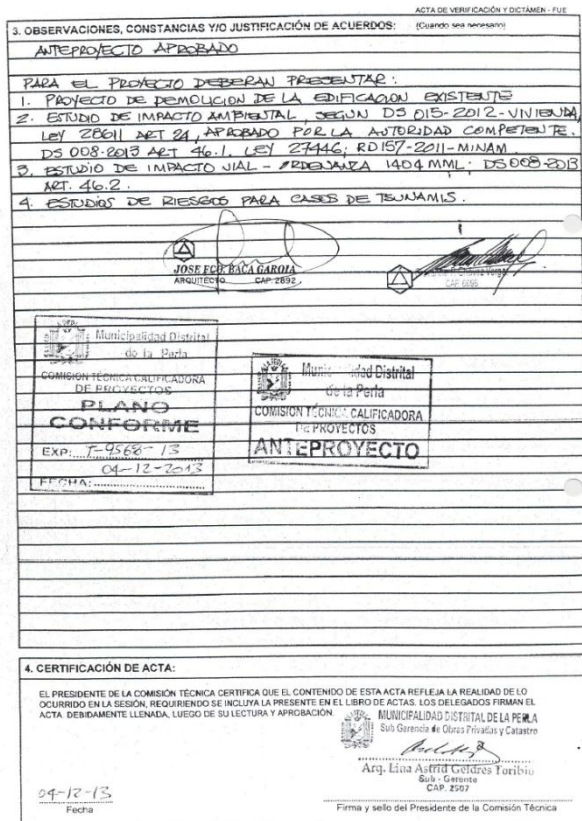 ACTA DE VERIFICACIÓN Y DICTÁMEN - FUE
3. OBSERVACIONES, CONSTANCIAS Y/O JUSTIFICACIÓN DE ACUERDOS: (Cuando sea necesario)
ANTEPROYECTO APROBADO
PARA EL PROYECTO DEBERAN PRESENTAR:
1. PROYECTO DE DEMOLICION DE LA EDIFICACION EXISTENTE
2. ESTUDIO DE IMPACTO AMBIENTAL, SEGUN DS 015-2012-VIVIENDA,
LEY 28611 ART 24, APROBADO POR LA AUTORIDAD COMPETENTE.
DS 008-2013 ART 46.1. LEY 27446; RD157-2011-MINAM.
3. ESTUDIO DE IMPACTO VIAL - ORDENANZA 1404 MML; DS 008-2013
ART. 46.2.
4. ESTUDIOS DE RIESGOS PARA CASOS DE TSUNAMIS.
JOSE FCO. BACA GARCIA
ARQUITECTO CAP. 2892
CAP. 6695
Municipalidad Distrital
de la Perla
COMISION TÉCNICA CALIFICADORA
DE PROYECTOS
PLANO
CONFORME
EXP: T-9568-13
04-12-2013
FECHA:
Distrital
de la Perla
COMISION TÉCNICA CALIFICADORA
DE PROYECTOS
ANTEPROYECTO
4. CERTIFICACIÓN DE ACTA:
EL PRESIDENTE DE LA COMISIÓN TÉCNICA CERTIFICA QUE EL CONTENIDO DE ESTA ACTA REFLEJA LA REALIDAD DE LO
OCURRIDO EN LA SESIÓN, REQUIRIENDO SE INCLUYA LA PRESENTE EN EL LIBRO DE ACTAS. LOS DELEGADOS FIRMAN EL
ACTA DEBIDAMENTE LLENADA, LUEGO DE SU LECTURA Y APROBACIÓN.
MUNICIPALIDAD DISTRITAL DE LA PERLA
Sub Gerencia de Obras Privadas y Catastro
Arq. Lina Astrid Geldres Toribio
Sub - Gerente
CAP. 2507
04-12-13
Fecha
Firma y sello del Presidente de la Comisión Técnica